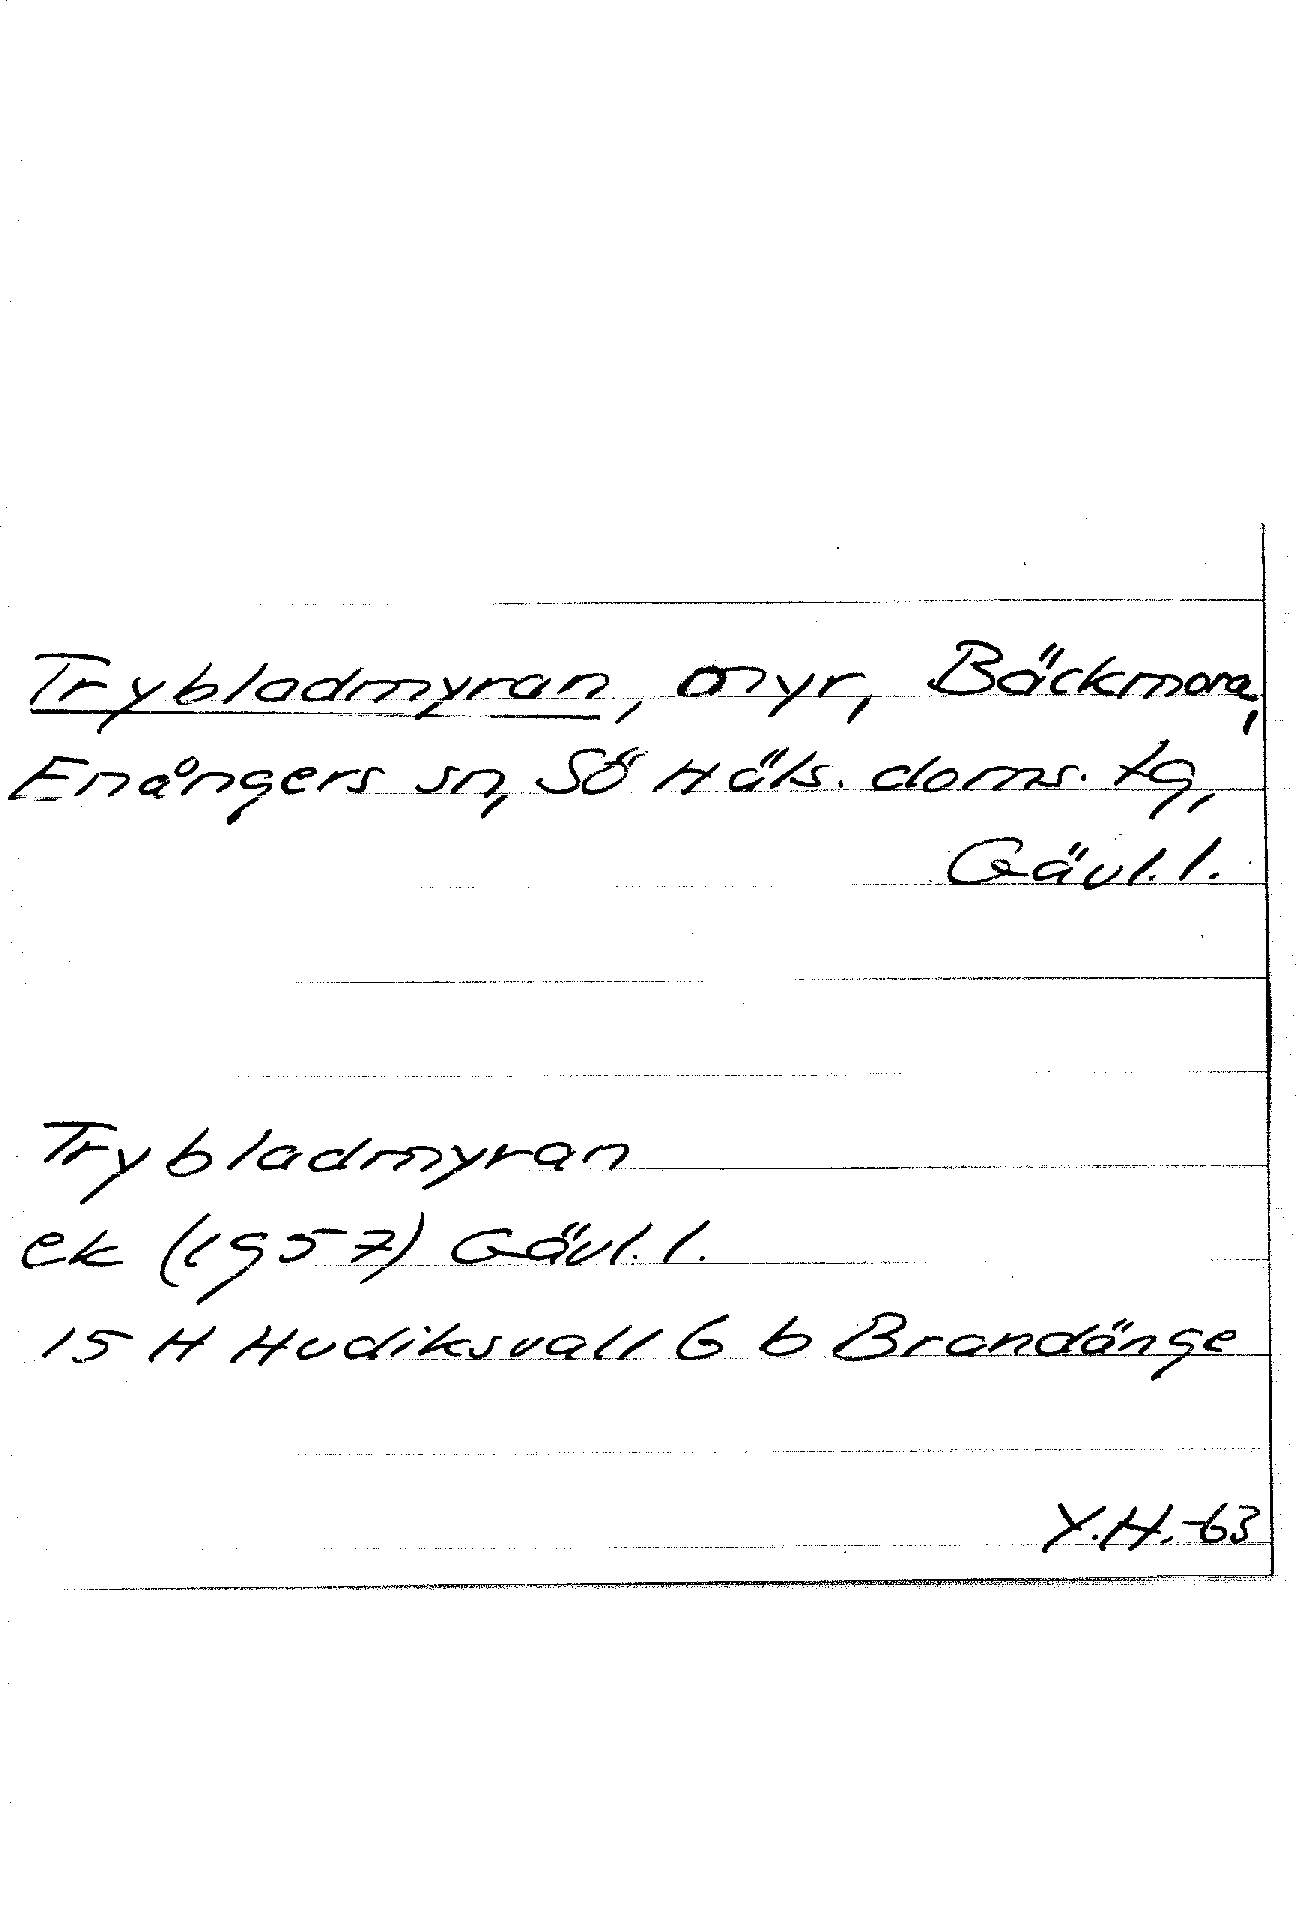 Trybladmyran, myr, Bäckmora,
Enångers sn, Sö Häls. doms. tg,
Gävl. l.
Trybladmyran
ek (1957) Gävl. l.
15 H Hudiksvall 6 b Brandänge
Y.H.-63